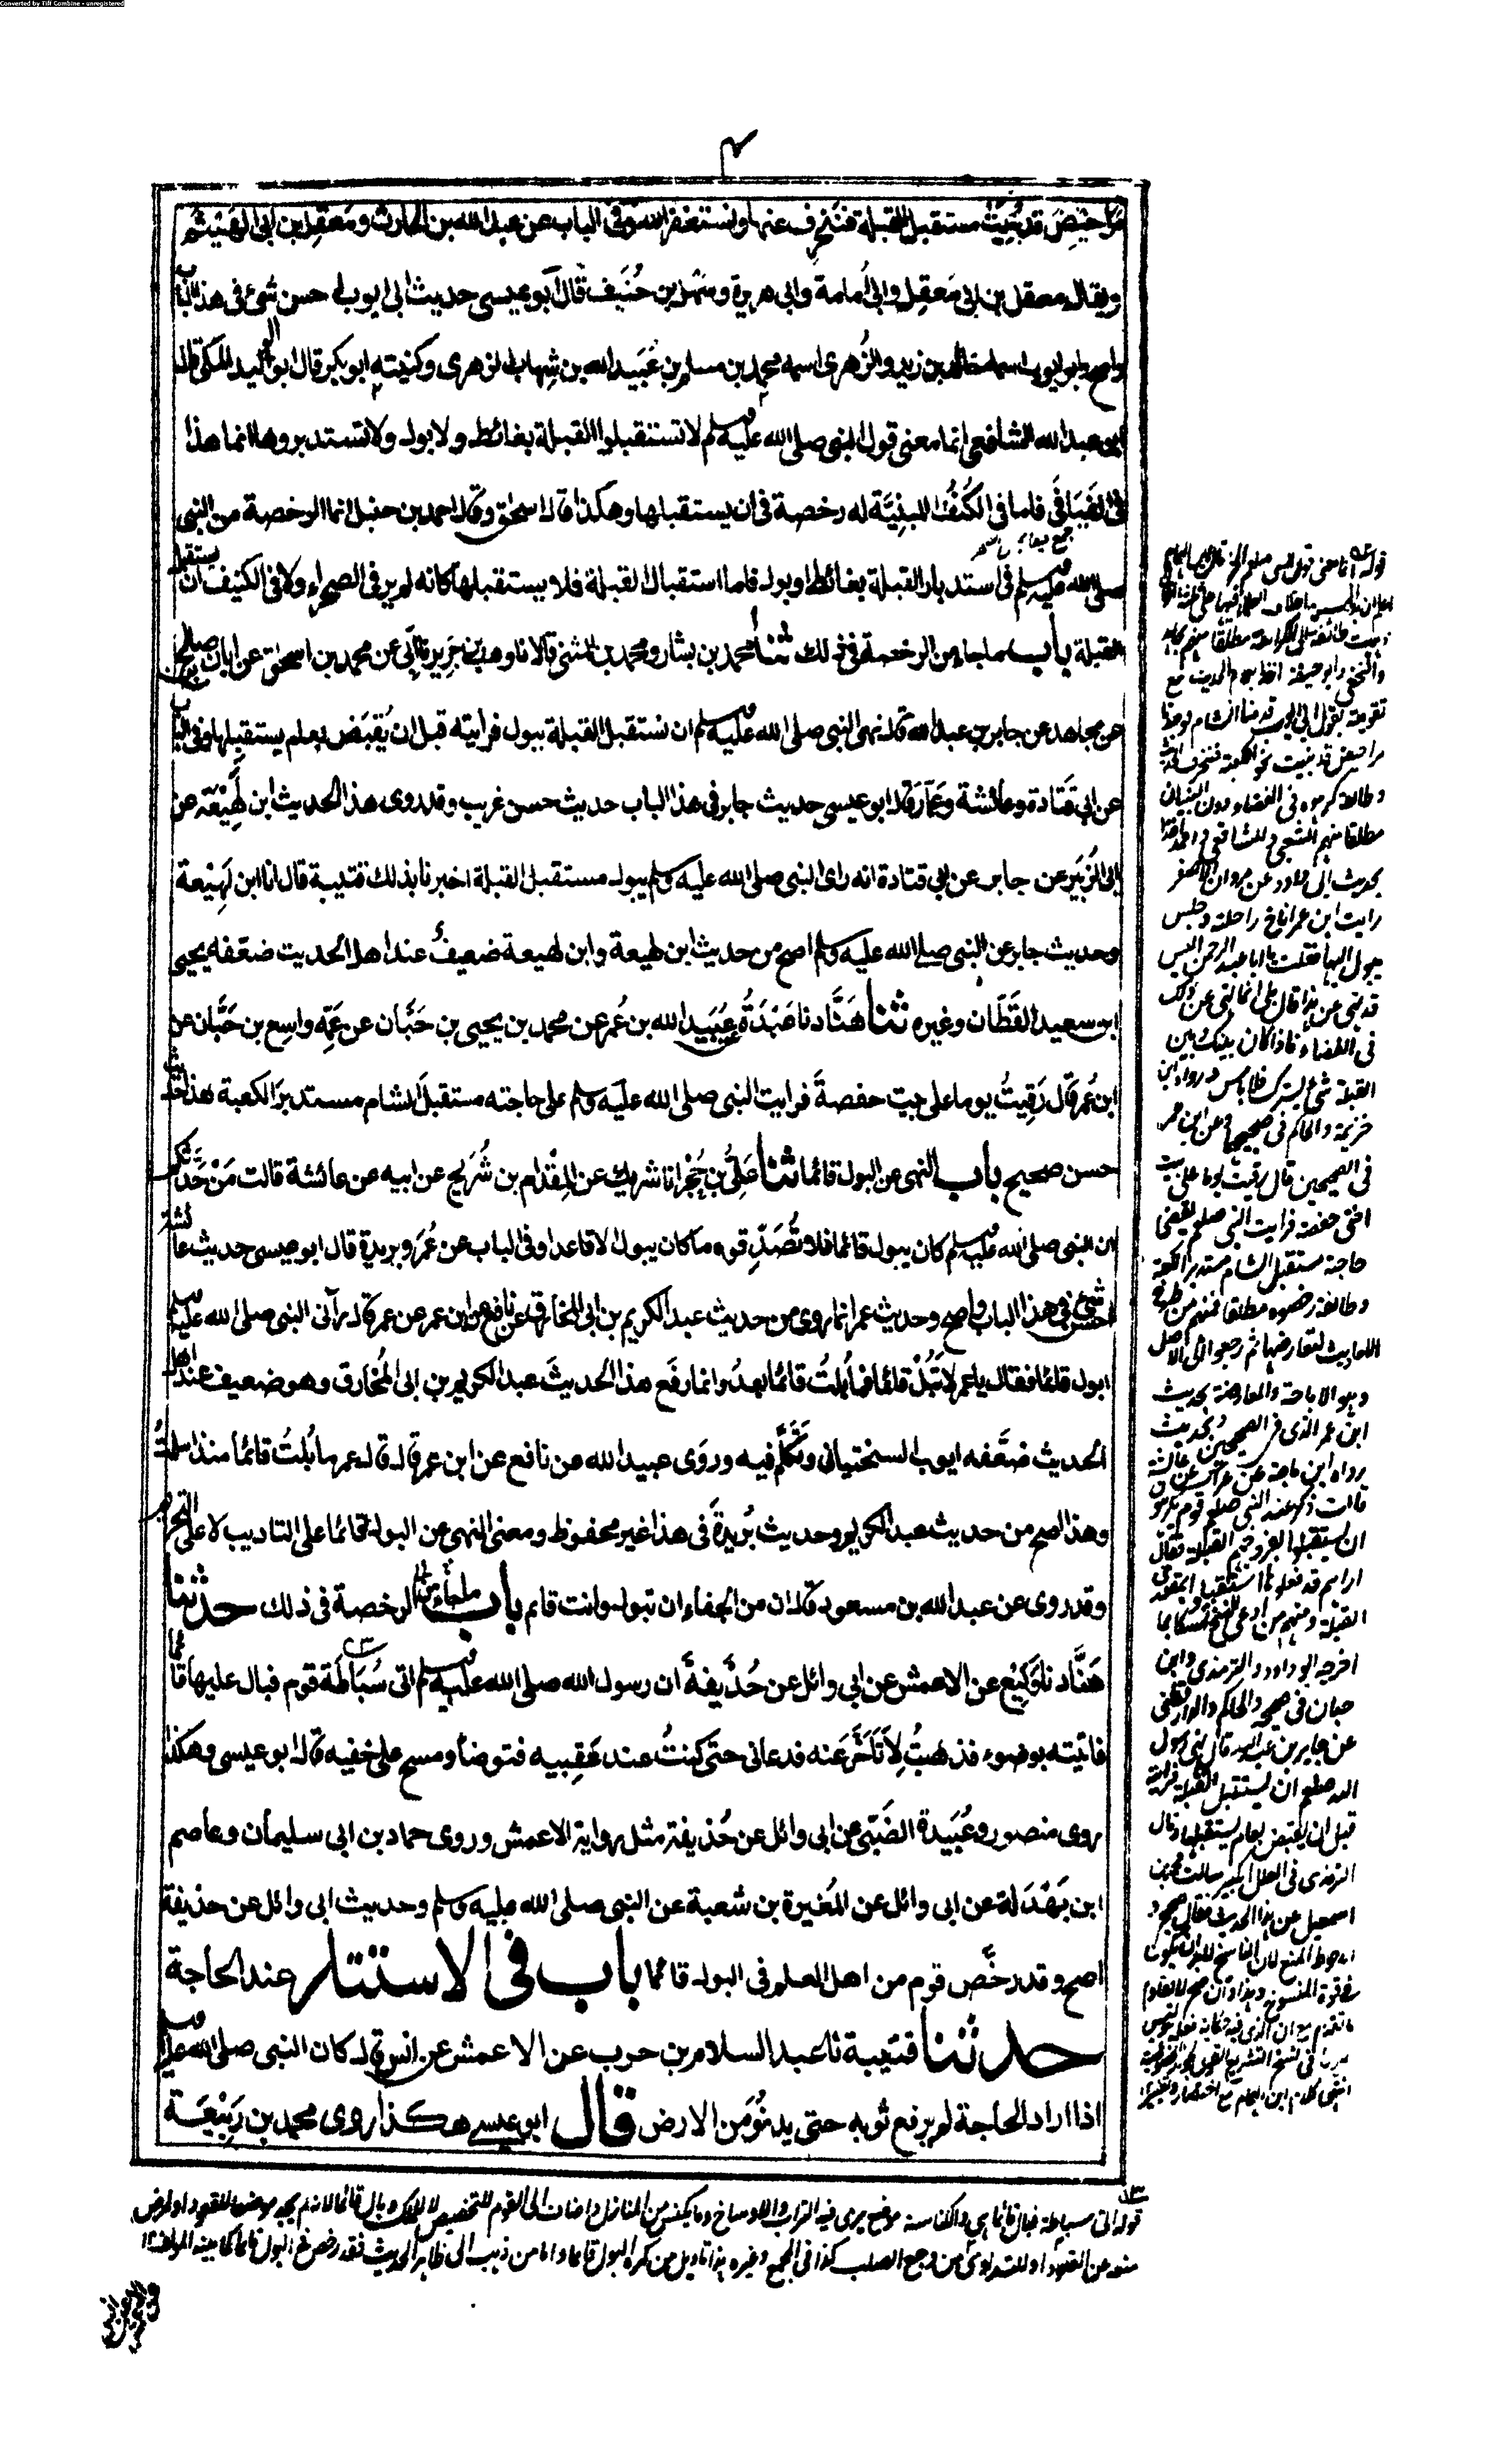 Converted by Tiff Combine - unregistered
٤
مراحيض قد بنيت مستقبل القبلة فننحرف عنها ونستغفر الله وفى الباب عن عبد الله بن الحارث ومعقل بن ابى الهيثم
ويقال معقل بن ابى معقل وابى أمامة وابى هريرة وسهل بن حنيف قال ابو عيسى حديث ابى ايوب احسن شئ فى هذا الباب
واصح وابو ايوب اسمه خالد بن زيد والزهرى اسمه محمد بن مسلم بن عبيد الله بن شهاب الزهرى وكنيته ابو بكر قال ابو الوليد المكى قال
ابو عبد الله الشافعى انما معنى قول النبى صلى الله عليه وسلم لا تستقبلوا القبلة بغائط ولا بول ولا تستدبروها انما هذا
فى الفيافى فاما فى الكنف المبنية له رخصة فى ان يستقبلها وهكذا قال اسحاق وقال احمد بن حنبل انما الرخصة من النبى
صلى الله عليه وسلم فى استدبار القبلة بغائط او بول فاما استقبال القبلة فلا يستقبلها كانه لم ير فى الصحراء ولا فى الكنيف ان يستقبل
القبلة باب ماجاء من الرخصة فى ذلك ثنا محمد بن بشار ومحمد بن المثنى قالا نا وهب بن جرير نا ابى عن محمد بن اسحاق عن ابان بن صالح
عن مجاهد عن جابر بن عبد الله قال نهى النبى صلى الله عليه وسلم ان نستقبل القبلة ببول فرايته قبل ان يقبض بعام يستقبلها وفى الباب
عن ابى قتادة وعائشة وعمار قال ابو عيسى حديث جابر فى هذا الباب حديث حسن غريب وقد روى هذا الحديث ابن لهيعة عن
ابى الزبير عن جابر عن ابى قتادة انه راى النبى صلى الله عليه وسلم يبول مستقبل القبلة اخبرنا بذلك قتيبة قال انا ابن لهيعة
وحديث جابر عن النبى صلى الله عليه وسلم اصح من حديث ابن لهيعة وابن لهيعة ضعيف عند اهل الحديث ضعفه يحيى
ابن سعيد القطان وغيره ثنا هناد نا عبدة عن عبيد الله بن عمر عن محمد بن يحيى بن حبان عن عمه واسع بن حبان عن
ابن عمر قال رقيت يوما على بيت حفصة فرايت النبى صلى الله عليه وسلم على حاجته مستقبل الشام مستدبر الكعبة هذا حديث
حسن صحيح باب النهى عن البول قائما ثنا على بن حجر انا شريك عن المقدام بن شريح عن ابيه عن عائشة قالت من حدثكم
ان النبى صلى الله عليه وسلم كان يبول قائما فلا تصدقوه ما كان يبول الا قاعدا وفى الباب عن عمر وبريدة قال ابو عيسى حديث عائشة
احسن شئ فى هذا الباب واصح وحديث عمر انما روى من حديث عبد الكريم بن ابى المخارق عن نافع عن ابن عمر عن عمر قال رآنى النبى صلى الله عليه وسلم
ابول قائما فقال يا عمر لا تبل قائما فما بلت قائما بعد وانما رفع هذا الحديث عبد الكريم بن ابى المخارق وهو ضعيف عند اهل
الحديث ضعفه ايوب السختيانى وتكلم فيه وروى عبيد الله عن نافع عن ابن عمر قال قال عمر ما بلت قائما منذ اسلمت
وهذا اصح من حديث عبد الكريم وحديث بريدة فى هذا غير محفوظ ومعنى النهى عن البول قائما على التاديب لا على التحريم
وقد روى عن عبد الله بن مسعود قال ان من الجفاء ان تبول وانت قائم باب ماجاء من الرخصة فى ذلك حدثنا
هناد نا وكيع عن الاعمش عن ابى وائل عن حذيفة ان رسول الله صلى الله عليه وسلم اتى سباطة قوم فبال عليها قائما
فاتيته بوضوء فذهبت لاتاخر عنه فدعانى حتى كنت عند عقبيه فتوضأ ومسح على خفيه قال ابو عيسى وهكذا
روى منصور وعبيدة الضبى عن ابى وائل عن حذيفة مثل رواية الاعمش وروى حماد بن ابى سليمان وعاصم
ابن بهدلة عن ابى وائل عن المغيرة بن شعبة عن النبى صلى الله عليه وسلم وحديث ابى وائل عن حذيفة
اصح وقد رخص قوم من اهل العلم فى البول قائما باب فى الاستتار عند الحاجة
حدثنا قتيبة نا عبد السلام بن حرب عن الاعمش عن انس قال كان النبى صلى الله عليه وسلم
اذا اراد الحاجة لم يرفع ثوبه حتى يدنو من الارض قال ابو عيسى هكذا روى محمد بن ربيعة
ذهبت طائفة الى الكراهة مطلقا منهم مجاهد
والنخعى وابو حنيفة اخذا بعموم الحديث مع
تقويته بقول ابى ايوب قدمنا الشام فوجدنا
مراحيض قد بنيت نحو الكعبة فننحرف الحديث
وطائفة كرهوه فى الفضاء دون البنيان
مطلقا منهم الشعبى والشافعى واحمد اخذا
بحديث ابى داود عن مروان الاصفر
رايت ابن عمر اناخ راحلته وجلس
يبول اليها فقلت يا ابا عبد الرحمن اليس
قد نهى عن هذا قال بلى انما نهى عن ذلك
فى الفضاء فاذا كان بينك وبين
القبلة شئ يسترك فلا باس رواه ابن
خزيمة والحاكم فى صحيحهما وعن ابن عمر
فى الصحيحين قال رقيت يوما على بيت
اختى حفصة فرايت النبى صلعم يقضى
حاجته مستقبل الشام مستدبر الكعبة
وطائفة رخصوه مطلقا فمنهم من طرح
الاحاديث لتعارضها ثم رجعوا الى الاصل
وهو الاباحة والمعارضة بحديث
ابن عمر الذى فى الصحيحين وبحديث
رواه ابن ماجة عن عراك عن عائشة
قالت ذكر عند النبى صلعم قوم يكرهون
ان يستقبلوا بفروجهم القبلة فقال
اراهم قد فعلوها استقبلوا بمقعدتى
القبلة ومنهم من ادعى النسخ تمسكا بما
اخرجه ابو داود والترمذى وابن
حبان فى صحيحه والحاكم والدارقطنى
عن جابر بن عبد الله قال نهى رسول
الله صلعم ان نستقبل القبلة فرايته
قبل ان يقبض بعام يستقبلها وقال
الترمذى فى العلل الكبير سالت محمد بن
اسمعيل عن هذا الحديث فقال صحيح
قوله اتى سباطة فبال قائما هى والكناسة موضع يرمى فيه التراب والاوساخ وما يكنس من المنازل واضافت الى القوم للتخصيص لا للملك وبال قائما لانه لم يجد موضعا للقعود او لمرض
منعه عن القعود او للتداوى من وجع الصلب كذا فى المجمع وغيره